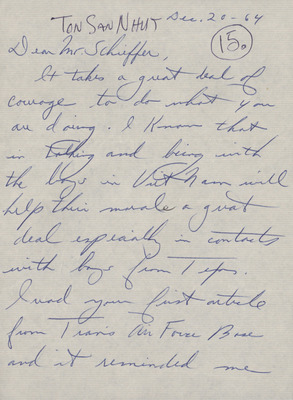 TON SAN NHUT Dec. 20-64
15.
Dear Mr. Schieffer,
It takes a great deal of
courage to do what you
are doing. I know that
in talking and being with
the boys in Viet Nam will
help their morale a great
deal especially in contacts
with boys from Texas.
I read your first article
from Travis Air Force Base
and it reminded me